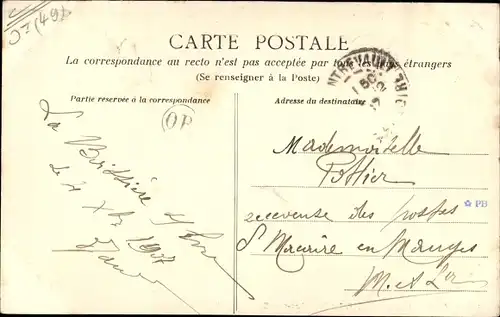 (49)
CARTE POSTALE
La correspondance au recto n'est pas acceptée par tous les pays étrangers
(Se renseigner à la Poste)
Partie réservée à la correspondance
Adresse du destinataire
OP
La
le
1907
Mademoiselle
Pottier
receveuse des postes
St Macaire en Mauges
M. et Loire
PB